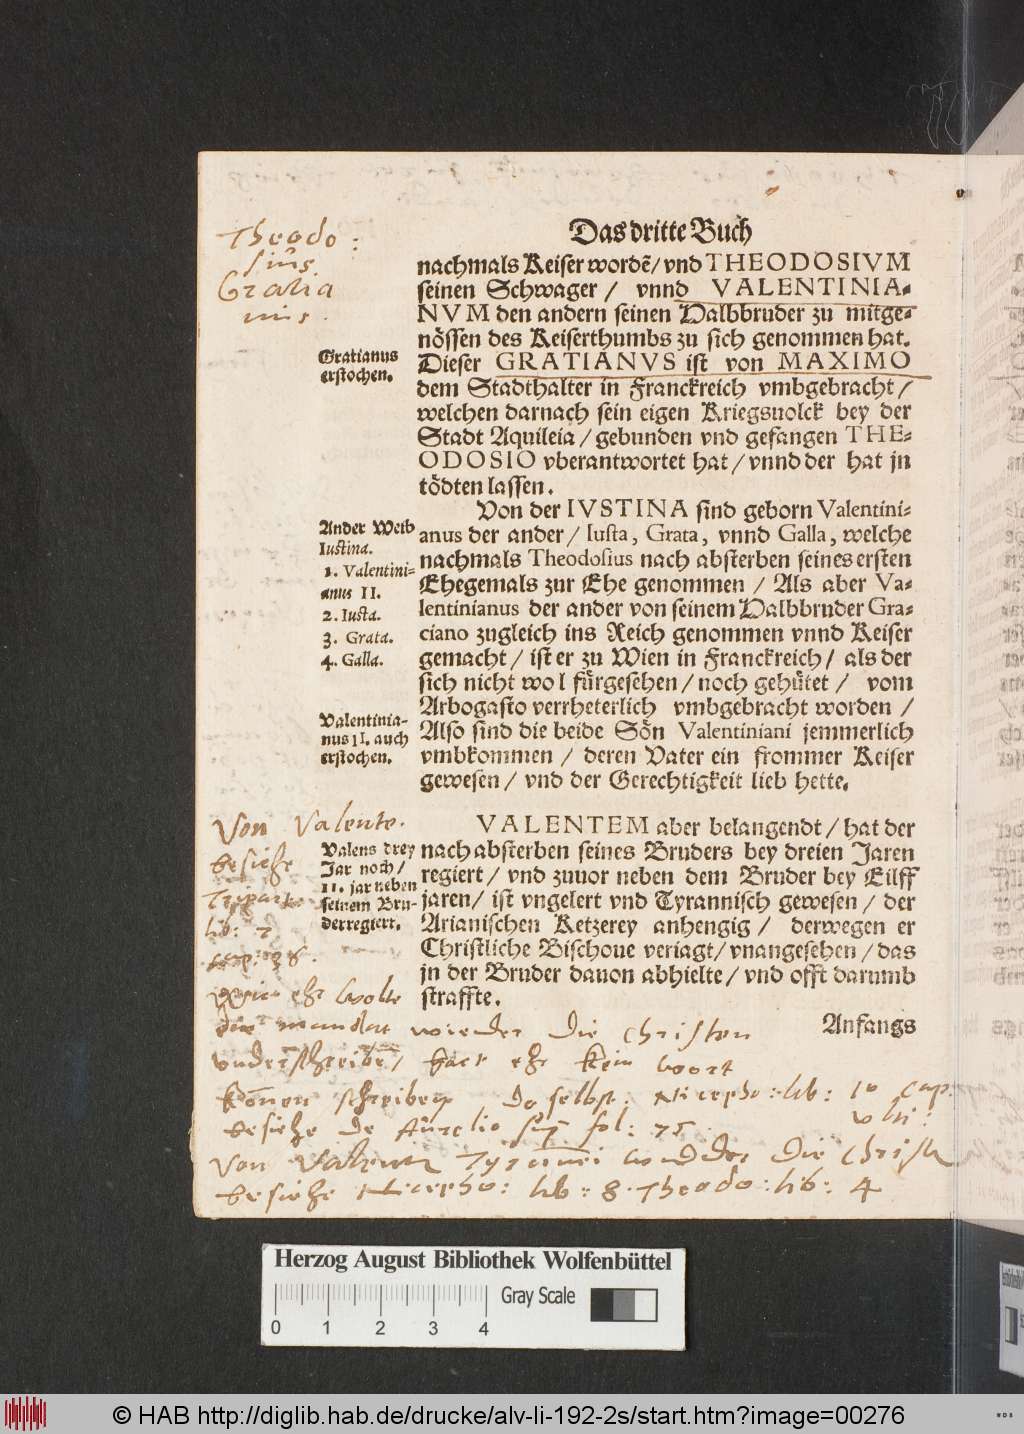 Das dritte Buch
Theodo:
sius.
Gratia
nus.
nachmals Keiser wordẽ/ vnd THEODOSIVM
seinen Schwager / vnnd VALENTINIA-
NVM den andern seinen Halbbruder zu mitge-
nössen des Keiserthumbs zu sich genommen hat.
Gratianus
erstochen.
Dieser GRATIANVS ist von MAXIMO
dem Stadthalter in Franckreich vmbgebracht /
welchen darnach sein eigen Kriegsuolck bey der
Stadt Aquileia / gebunden vnd gefangen THE-
ODOSIO vberantwortet hat / vnnd der hat jn
tödten lassen.
Ander Weib
Iustina.
1. Valentini-
anus II.
2. Iusta.
3. Grata.
4. Galla.
Von der IVSTINA sind geborn Valentini-
anus der ander / Iusta, Grata, vnnd Galla, welche
nachmals Theodosius nach absterben seines ersten
Ehegemals zur Ehe genommen / Als aber Va-
lentinianus der ander von seinem Halbbruder Gra-
ciano zugleich ins Reich genommen vnnd Keiser
gemacht / ist er zu Wien in Franckreich / als der
sich nicht wol fürgesehen / noch gehütet / vom
Arbogasto verrheterlich vmbgebracht worden /
Valentinia-
nus II. auch
erstochen.
Also sind die beide Sön Valentiniani jemmerlich
vmbkommen / deren Vater ein frommer Keiser
gewesen / vnd der Gerechtigkeit lieb hette.
Von Valente.
besiehe
Tripart:
lib: 7
Valens drey
Jar noch /
11. jar neben
seinem Bru-
der regiert.
VALENTEM aber belangendt / hat der
nach absterben seines Bruders bey dreien Jaren
regiert / vnd zuuor neben dem Bruder bey Eilff
jaren / ist vngelert vnd Tyrannisch gewesen / der
Arianischen Ketzerey anhengig / derwegen er
Christliche Bischoue veriagt / vnangesehen / das
jn der Bruder dauon abhielte / vnd offt darumb
straffte.
Anfangs
ehr wolte
die mandat wieder die Christen
vnderschreibẽ / hatt ehr kein wort
können schreiben Do selbst: Nicepho: lib: 10 Cap.
besiehe de Aurelio fol: 75.
Von Valentis Tyrannei widder die Christen
besiehe Nicepho: lib: 8. Theodo: lib: 4
Herzog August Bibliothek Wolfenbüttel
0 1 2 3 4
Gray Scale
© HAB http://diglib.hab.de/drucke/alv-li-192-2s/start.htm?image=00276